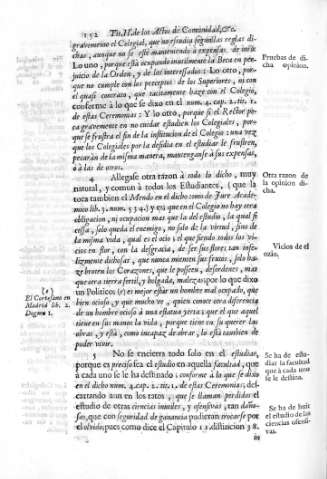 152 Tit. II. de los Actos de Comunidad, &c.
gravemente el Colegial, que no estudia segun las reglas di-
chas, aunque no se esté manteniendo à expensas de
Lo uno, porque està ocupando inutilmente la Beca en per-
juicio de la Orden, y de los interessados: Lo otro, por-
que no cumple con los preceptos de los Superiores, ni con
el quasi contrato, que tacitamente haze con el Colegio,
conforme à lo que se dixo en el num. 4. cap. 2. tit. 1.
de estas Ceremonias: Y lo otro, porque si el Rector pe-
ca gravemente en no cuidar estudien los Colegiales, por-
que se frustra el fin de la institucion de el Colegio: una vez
que los Colegiales por la desidia en el estudiar le frustren,
pecaràn de la misma manera, mantenganse à sus expensas,
ò à las de otros.
Pruebas de di-
cha opinion.
4 Allegase otra razon à todo lo dicho, muy
natural, y comun à todos los Estudiantes, (que la
toca tambien el Mendo en el dicho tomo de Jure Acade-
mico lib. 3. num. 534.) y es que en el Colegio no hay otra
obligacion, ni ocupacion mas que la del estudio, la qual si
cessa, solo queda el enemigo, no solo de la virtud, sino de
la misma vida, qual es el ocio: el que siendo todos los vi-
cios en flor, con la desgracia, de ser sus flores tan infe-
lizmente dichosas, que nunca mienten sus frutos, solo ha-
ze broten los Corazones, que le posseen, desordenes, mas
que otra tierra fertil, y holgada, malezas: por lo que dixo
un Politico: (e) es mejor estàr un hombre mal ocupado, que
bien ocioso, y que mucho vè, quien conoce otra diferencia
de un hombre ocioso à una estatua yerta: que el que aquel
tiene en sus manos la vida, porque tiene en su querer las
obras, y esta, como incapàz de obrar, lo està tambien de
poder vivir.
Otra razon de
la opinion di-
cha.
Vicios de el
ocio.
(e)
El Cortesano en
Madrid lib. 2.
Dogma 1.
5 No se encierra todo solo en el estudiar,
porque es preciso sea el estudio en aquella facultad, que
à cada uno se le ha destinado; conforme à lo que se dixo
en el dicho num. 4. cap. 2. tit. 1. de estas Ceremonias; des-
cartando aun en los ratos, que se llaman perdidos el
estudio de otras ciencias inutiles, y ofensivas, tan daño-
sas, que con seguridad de ganancia pudieran trocarse por
el olvido; pues como dice el Capitulo 13. distincion 38.
Se ha de estu-
diar la facultad
que à cada uno
se le destina.
Se ha de huir
el estudio de las
ciencias ofensi-
vas.